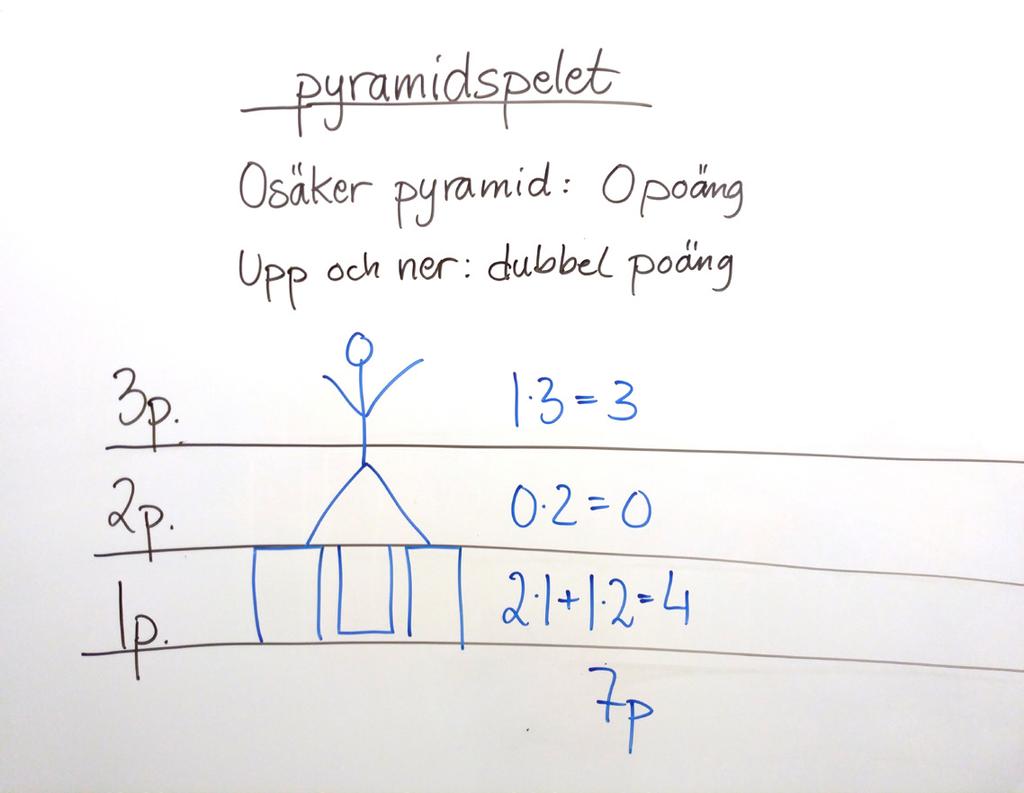 pyramidspelet
Osäker pyramid: 0 poäng
Upp och ner: dubbel poäng
3p. 1·3=3
2p. 0·2=0
1p. 2·1+1·2=4
7p